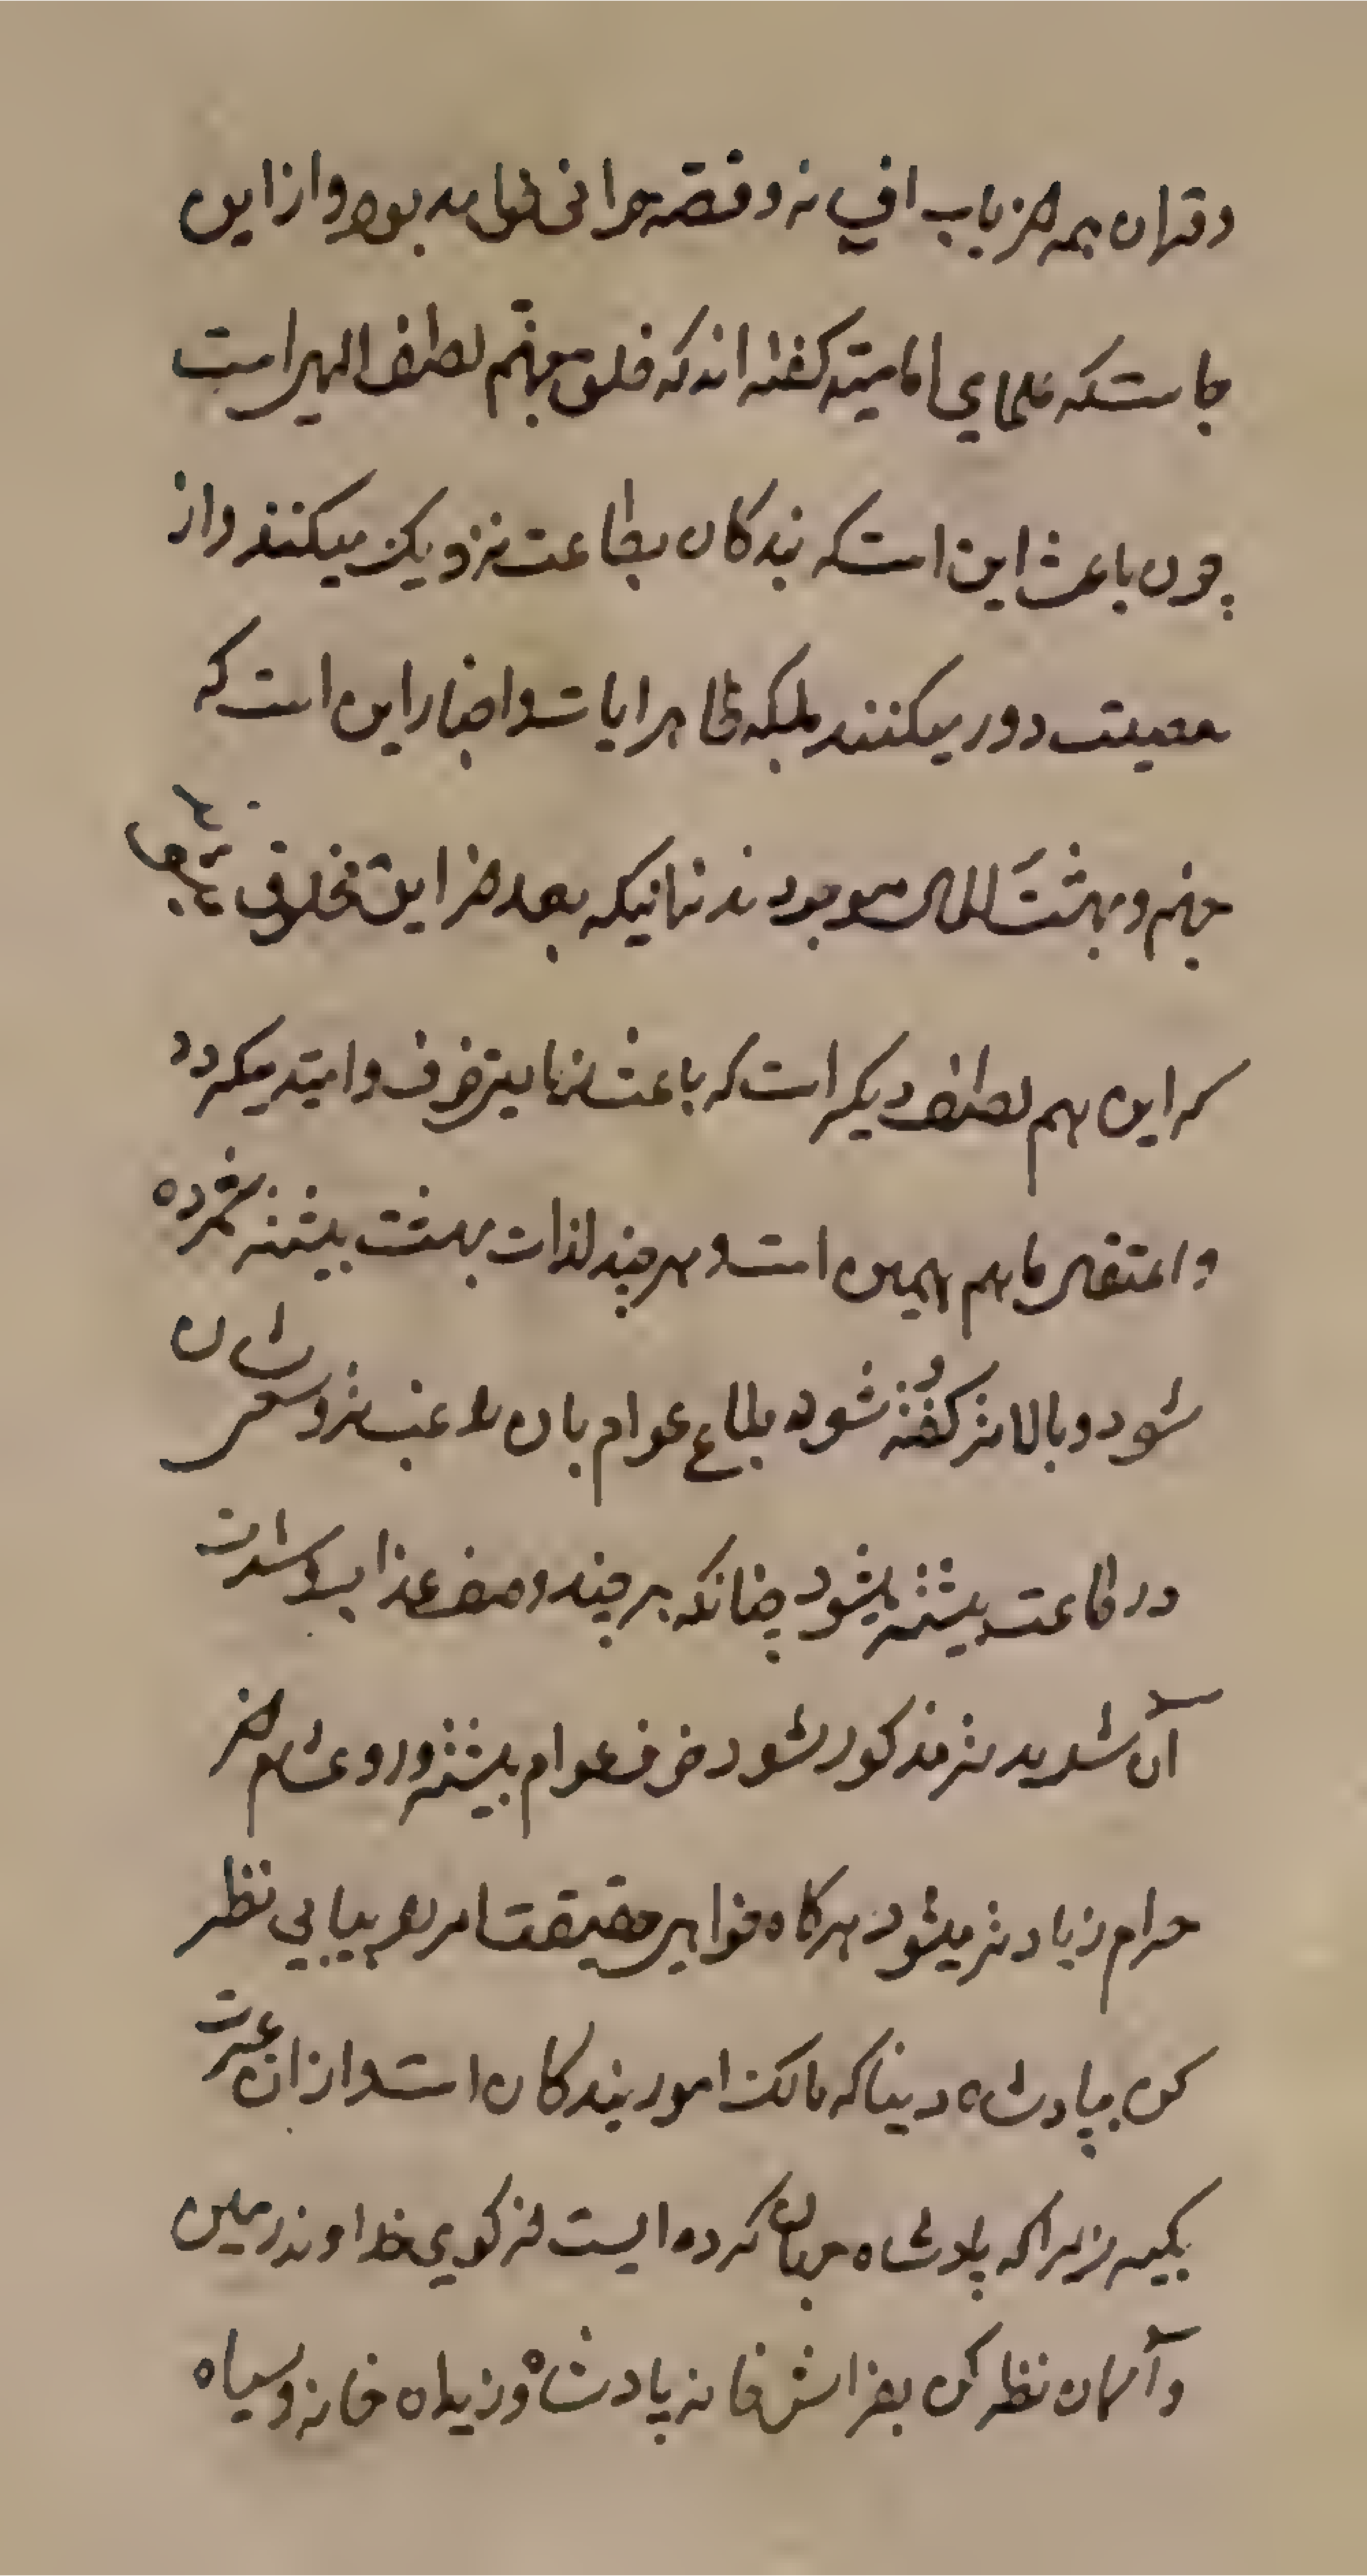 و قران همه از باب افسانه و قصه خوانی خواهد بود و از این
جاست که علمای امامیّه گفته اند که خلق جهنّم لطف الهی است
چون باعث این است که بندکان بطاعت نزدیک میکنند و از
معصیت دور میکنند بلکه ظاهر ایات و اخبار این است که
جهنم و بهشت الان موجودند نه انیکه بعد از این مخلوق
که این هم لطف دیکر است که باعث خوف و امید میکردد
و اعتقاد ما هم همین است و هر چند لذات بهشت بیشتر شمرده
شود و بالاتر کفته شود طباع عوام بان راغب تر و سعی شان
در طاعت بیشتر میشود چنانکه هر چند وصف عذاب و شدت
آن شدید تر مذکور شود خوف عوام بیشتر و روع شان از
حرام زیادتر میشود هرکاه خواهی حقیقت امر را بیابی نظر
کن بپادشاه دنیا که مالک امور بندکان است و از ان عبرت
بکیر زیرا که پادشاه جهان کرده ایست از کوی خداوند زمین
و آسمان نظر کن بفراش خانه پادشاه و زنداه خانه و سیاه